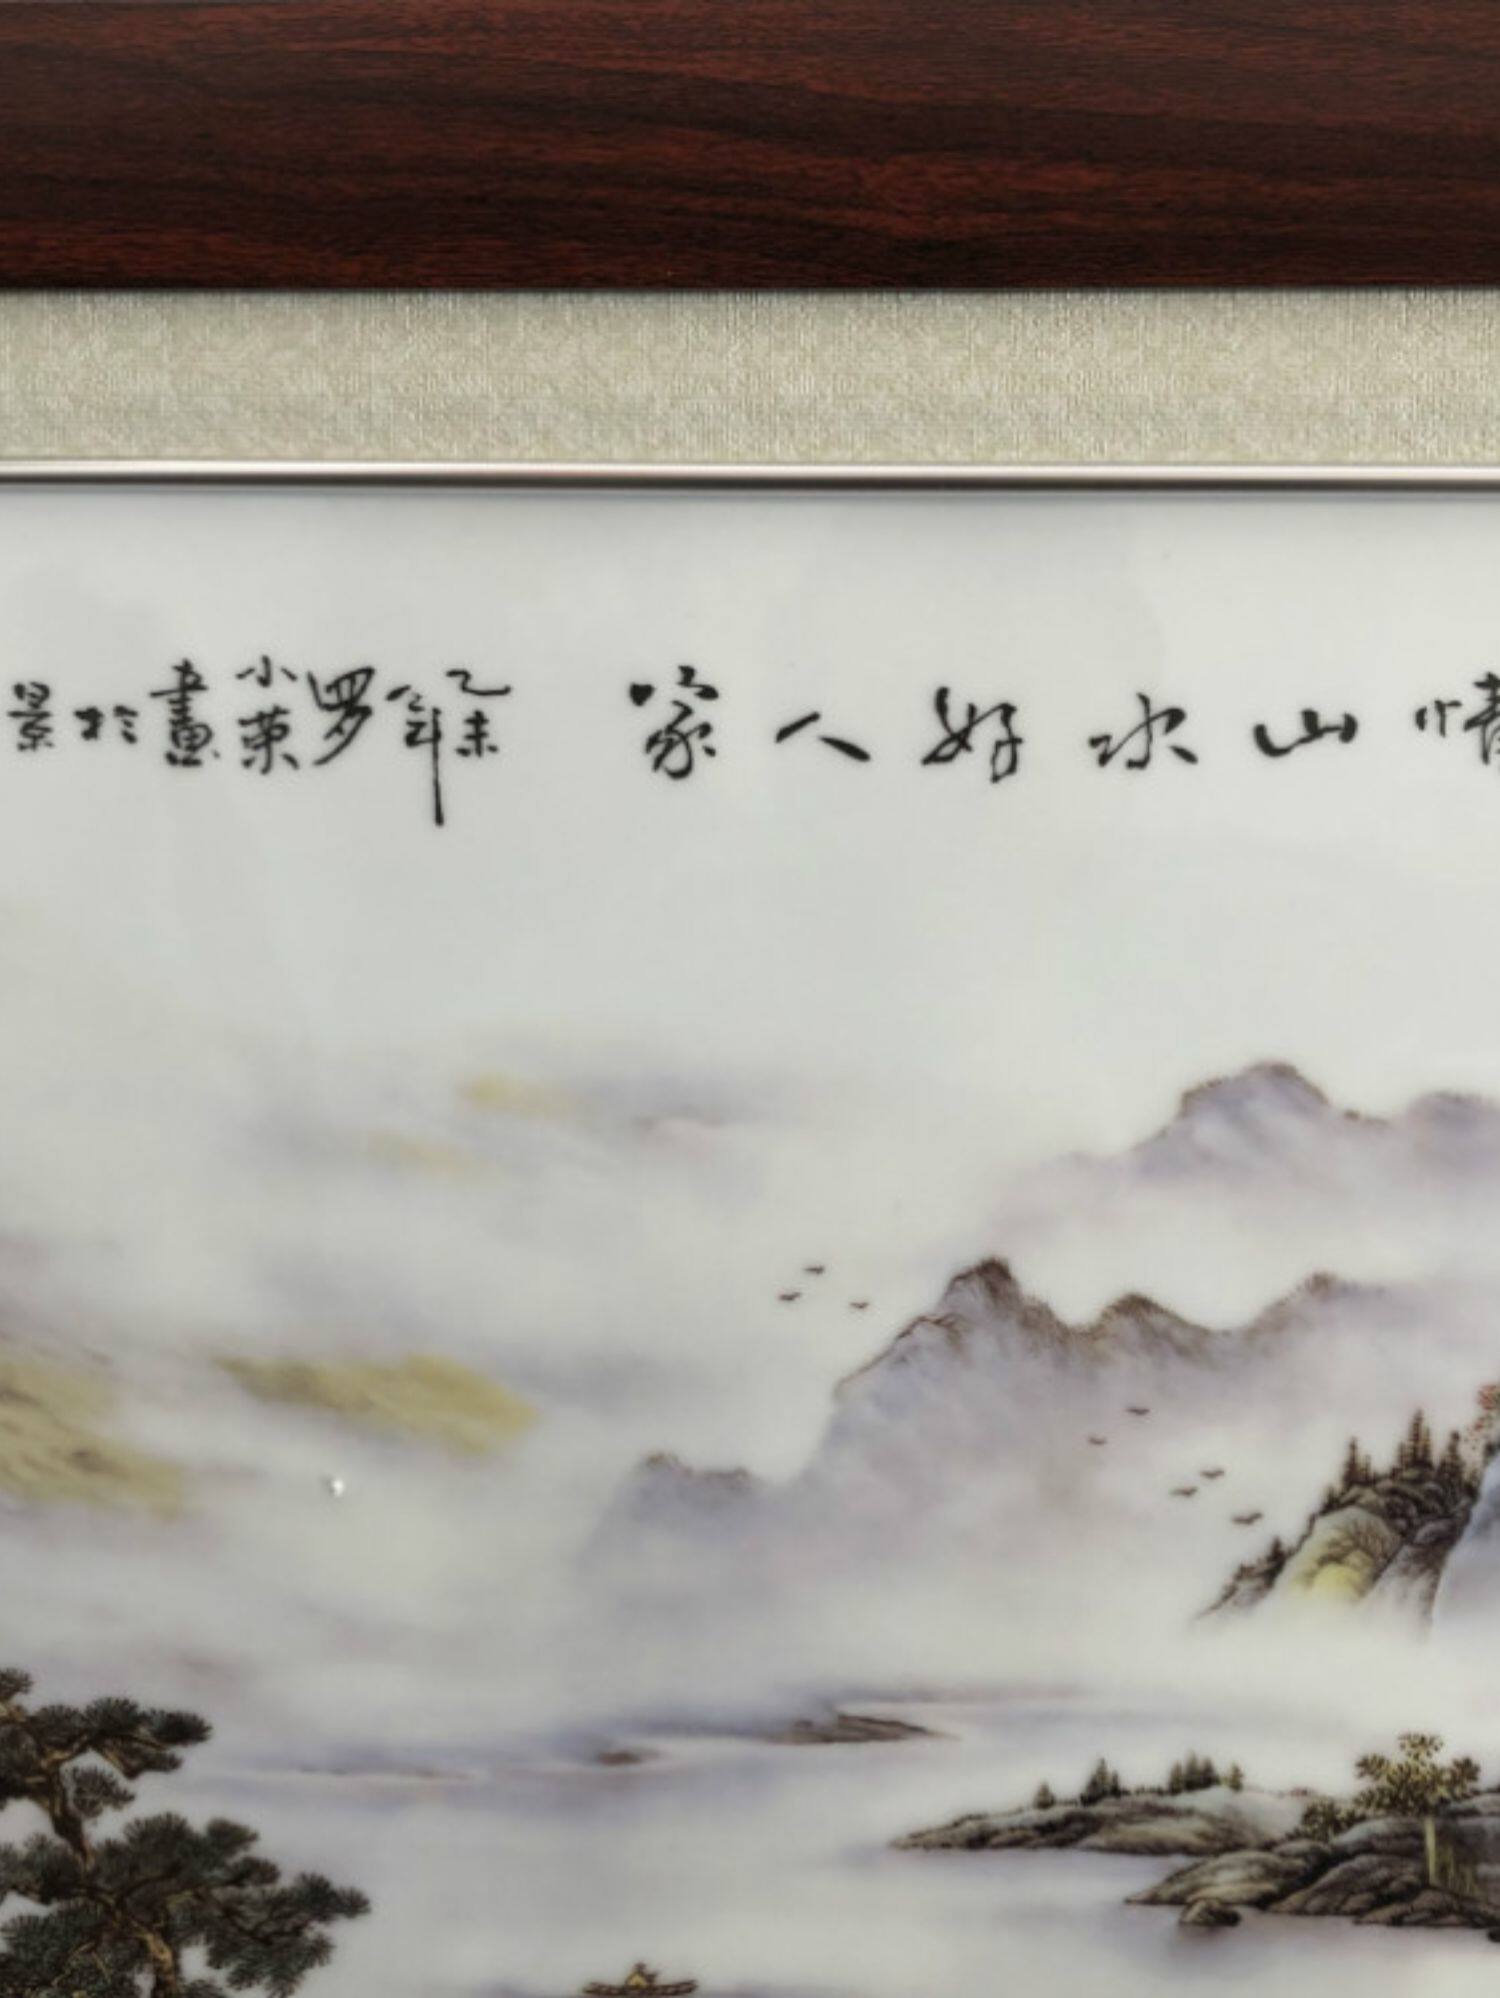 情山水好人家 乙未年 罗小英畫於景